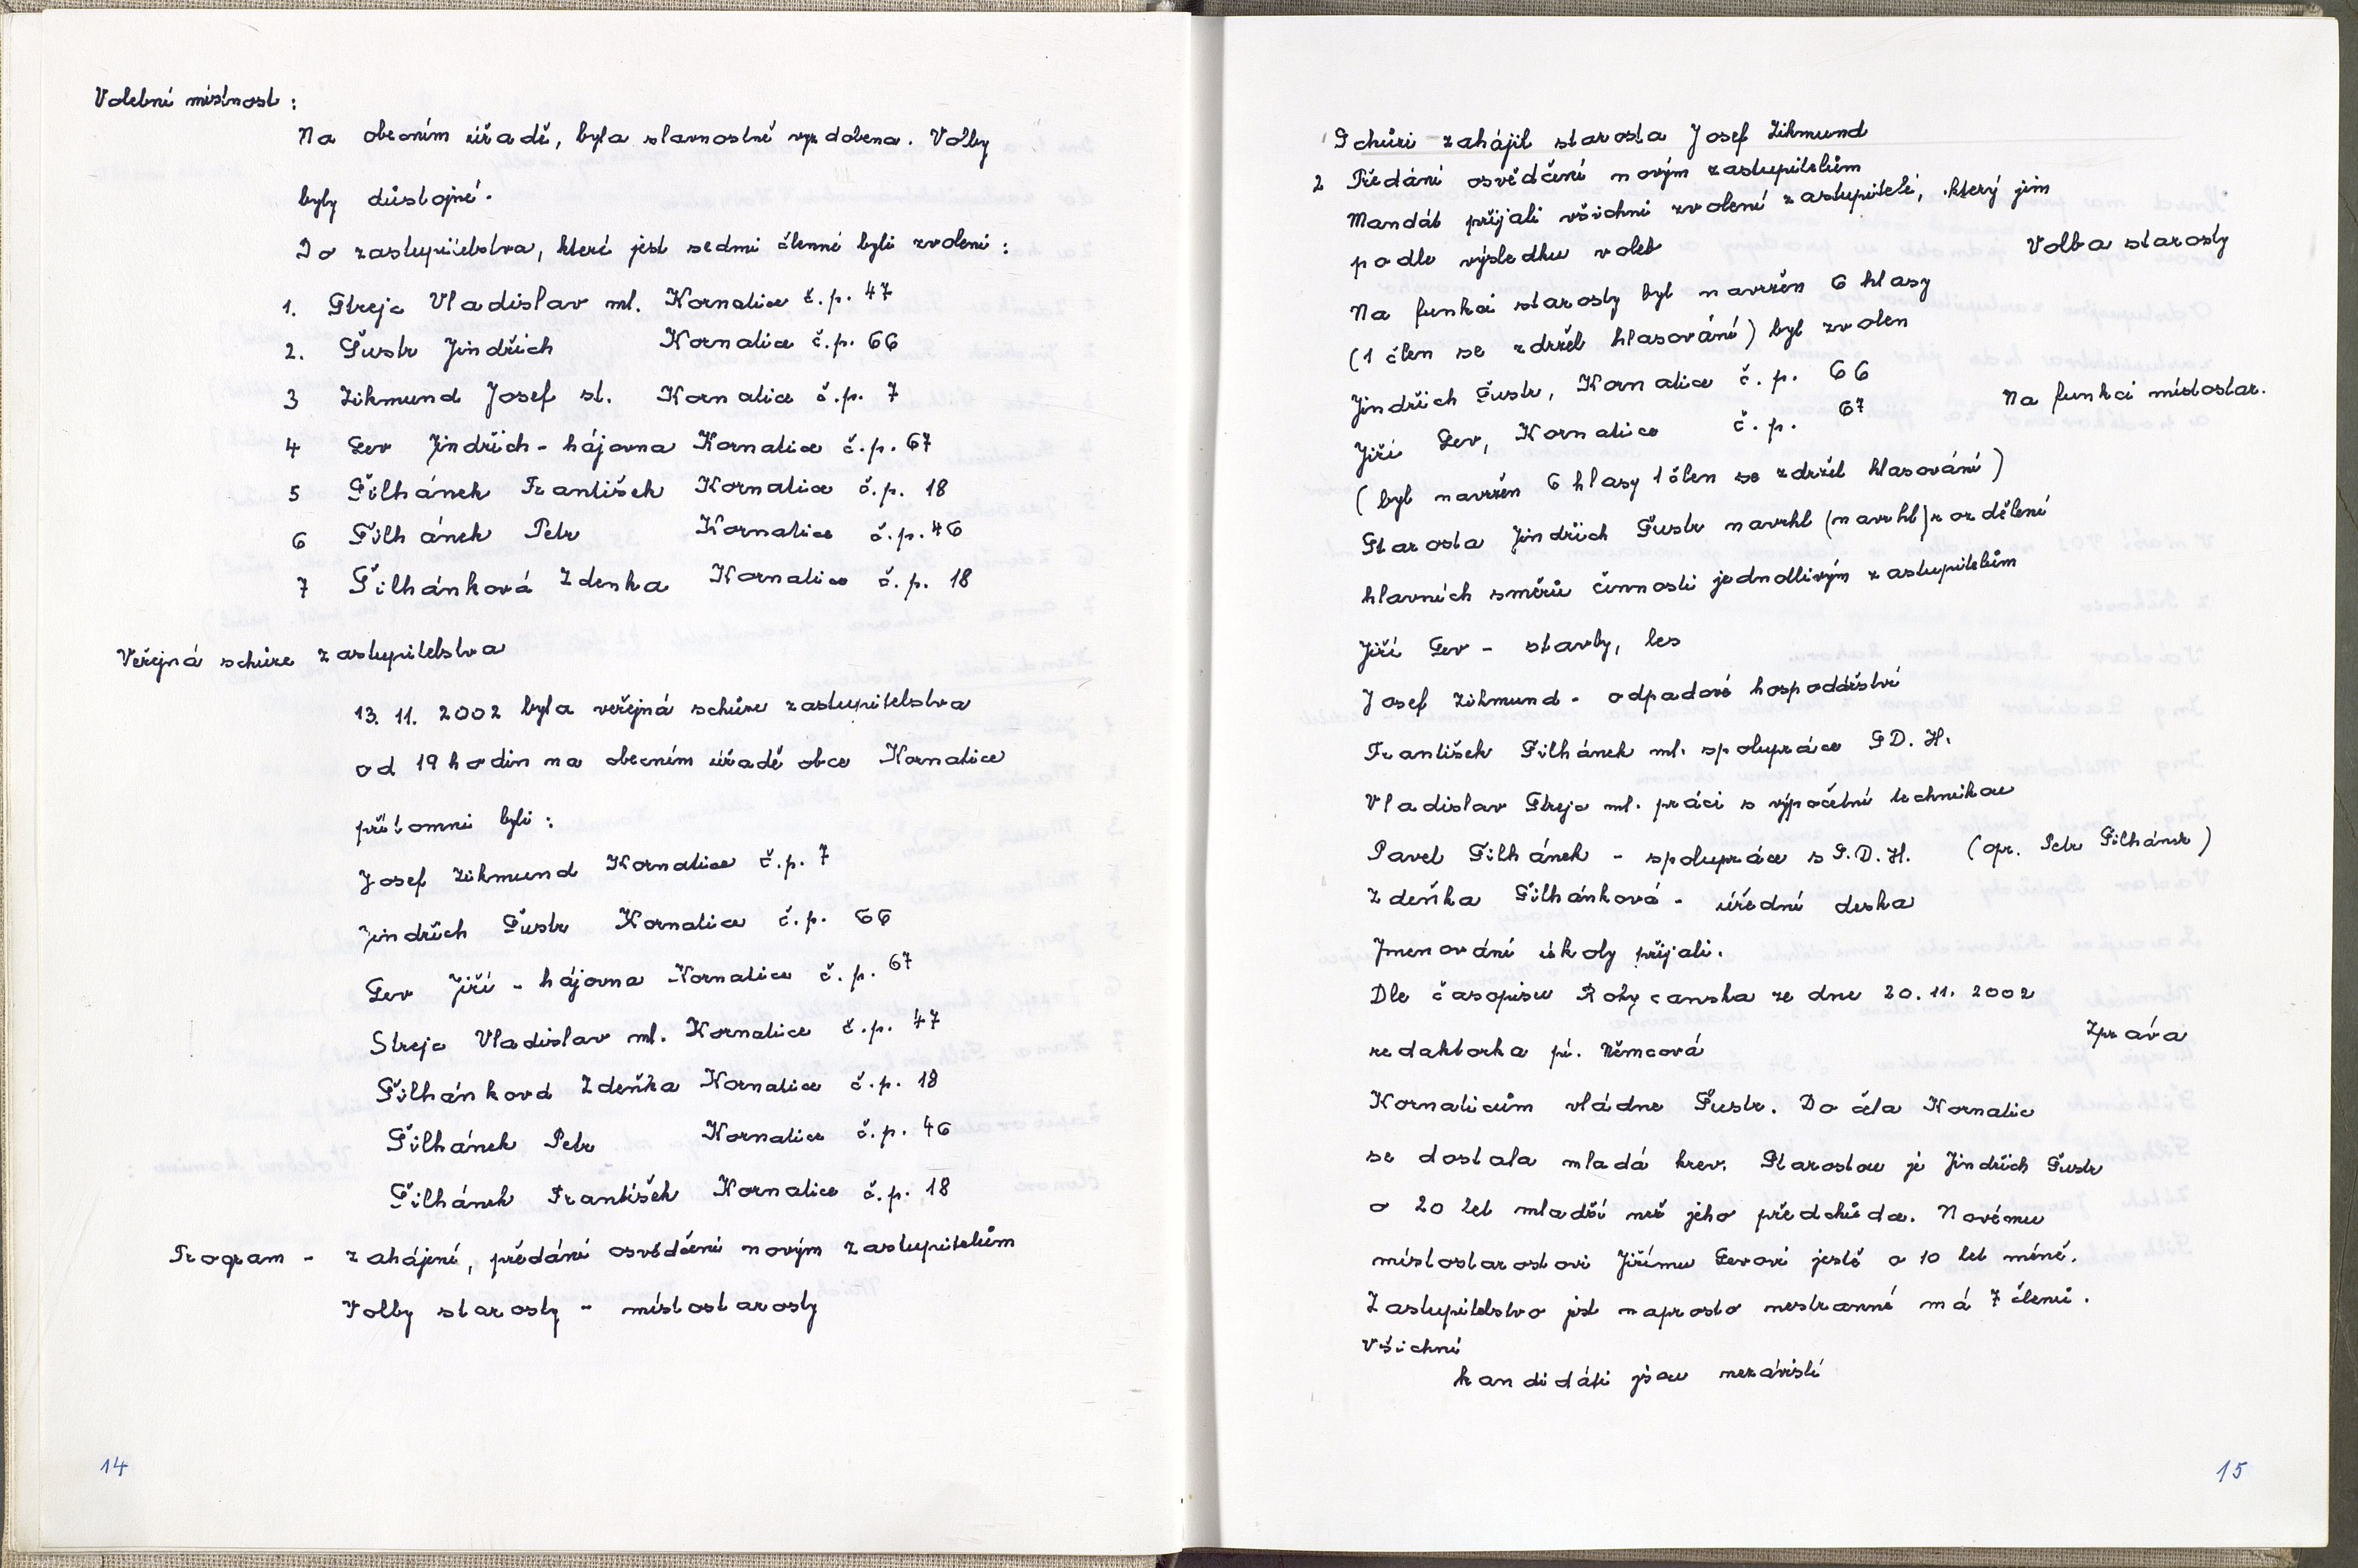 Volební místnost:
Na obecním úřadě, byla slavnostně vyzdobena. Volby
byly důstojné.
Do zastupitelstva, které jest sedmi členné byli zvoleni:
1. Strejc Vladislav ml. Kornatice č.p. 47
2. Šustr Jindřich Kornatice č.p. 66
3 Zikmund Josef st. Kornatice č.p. 7
4 Lev Jindřich - hájovna Kornatice č.p. 67
5 Šilhánek František Kornatice č.p. 18
6 Šilhánek Petr Kornatice č.p. 46
7 Šilhánková Zdenka Kornatice č.p. 18
Veřejná schůze zastupitelstva
13. 11. 2002 byla veřejná schůze zastupitelstva
od 19 hodin na obecním úřadě obce Kornatice
přítomni byli:
Josef Zikmund Kornatice č.p. 7
Jindřich Šustr Kornatice č.p. 66
Lev Jiří - hájovna Kornatice č.p. 67
Strejc Vladislav ml. Kornatice č.p. 47
Šilhánková Zdeňka Kornatice č.p. 18
Šilhánek Petr Kornatice č.p. 46
Šilhánek František Kornatice č.p. 18
Program - zahájení, předání osvědčení novým zastupitelům
Volby starosty - místostarosty
14
Schůzi zahájil starosta Josef Zikmund
2 Předání osvědčení novým zastupitelům
Mandát přijali všichni zvolení zastupitelé, který jim
podle výsledku voleb
Volba starosty
Na funkci starosty byl navržen 6 hlasy
(1 člen se zdržel hlasování) byl zvolen
Jindřich Šustr, Kornatice č.p. 66
Na funkci místostar.
Jiří Lev, Kornatice č.p. 67
(byl navržen 6 hlasy 1 člen se zdržel hlasování)
Starosta Jindřich Šustr navrhl (navrhl) rozdělení
hlavních směrů činnosti jednotlivým zastupitelům
Jiří Lev - stavby, les
Josef Zikmund - odpadové hospodářství
František Šilhánek ml. spolupráce SD. H.
Vladislav Strejc ml. práci s výpočetní technikou
Pavel Šilhánek - spolupráce s S.D.H. (opr. Petr Šilhánek)
Zdeňka Šilhánková - úřední deska
Jmenování úkoly přijali.
Dle časopisu Rokycanska ze dne 20. 11. 2002
redaktorka pí. Němcová
Zpráva
Kornaticům vládne Šustr. Do čela Kornatic
se dostala mladá krev. Starostou je Jindřich Šustr
o 20 let mladší než jeho předchůdce. Novému
místostarostovi Jiřímu Levovi jestě o 10 let méně.
Zastupitelstvo jest naprosto nestranné má 7 členů.
Všichni
kandidáti jsou nezávislí
15